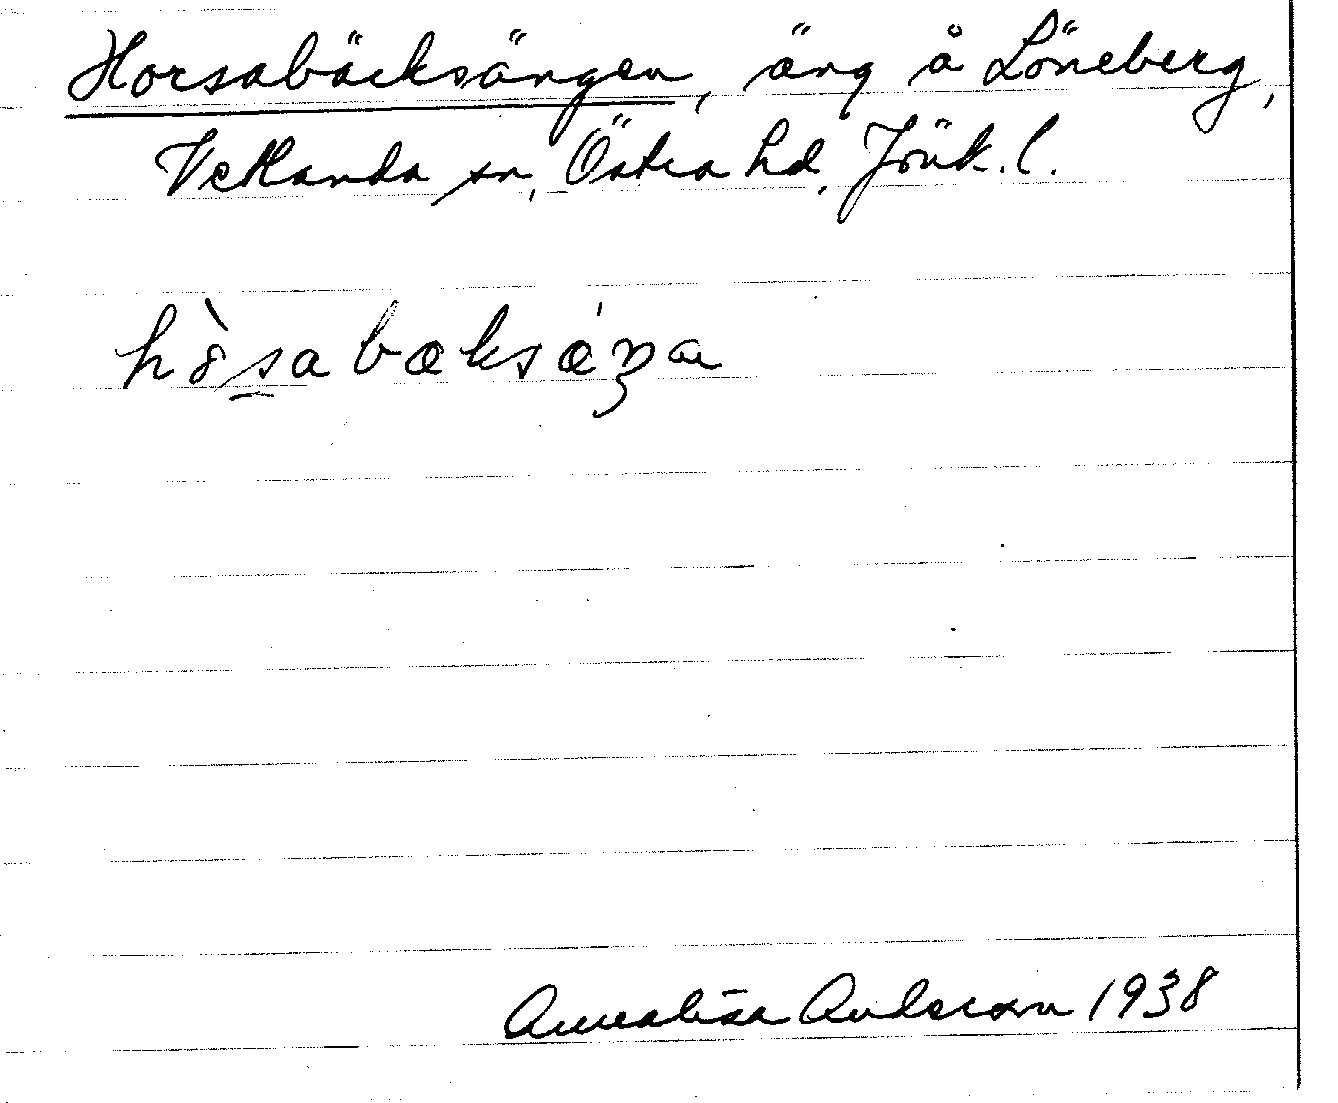 Horsabäcksängen, äng å Löneberg,
Vetlanda sn, Östra hd, Jönk. l.
Annalisa Anderson 1938